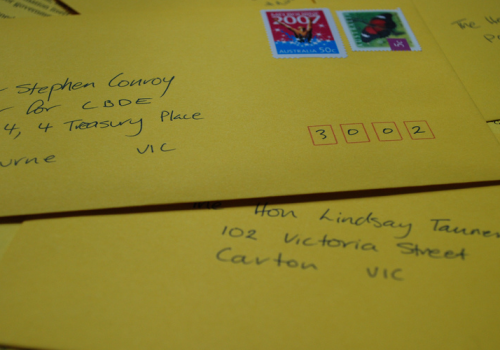 Stephen Conroy
for CBDE
4, 4 Treasury Place
ourne VIC
3002
2007
AUSTRALIA 50c
The H
Hon Lindsay Tanner
102 Victoria Street
Carton VIC